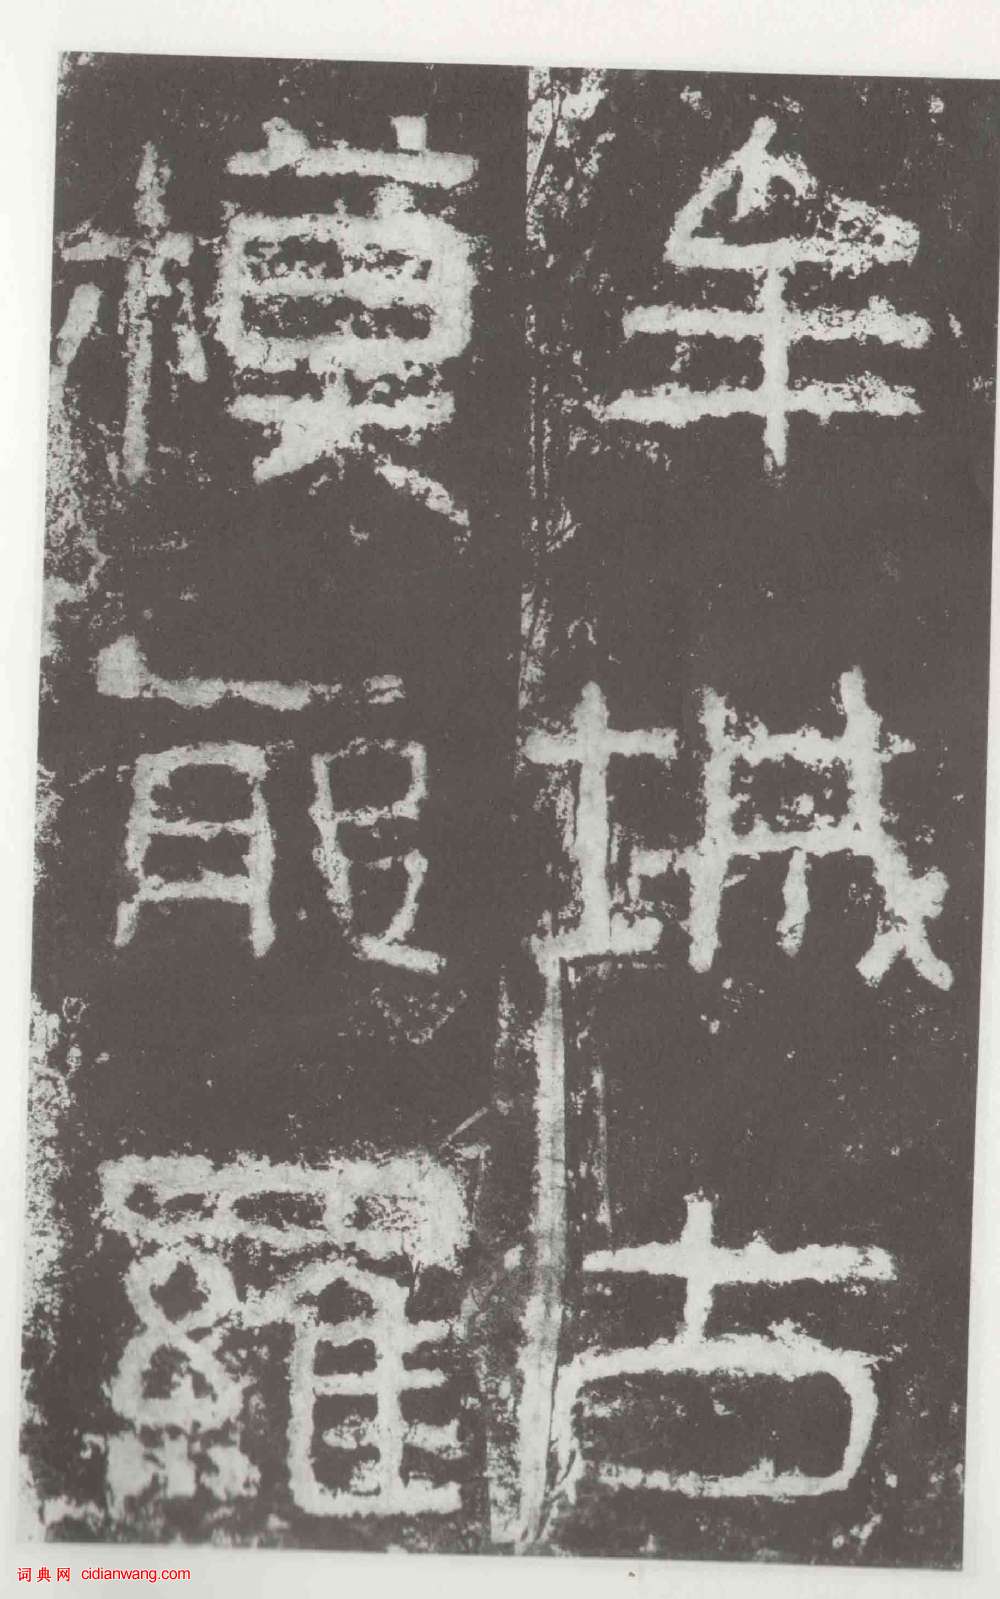 牟城古
模耶羅
词典网 cidianwang.com